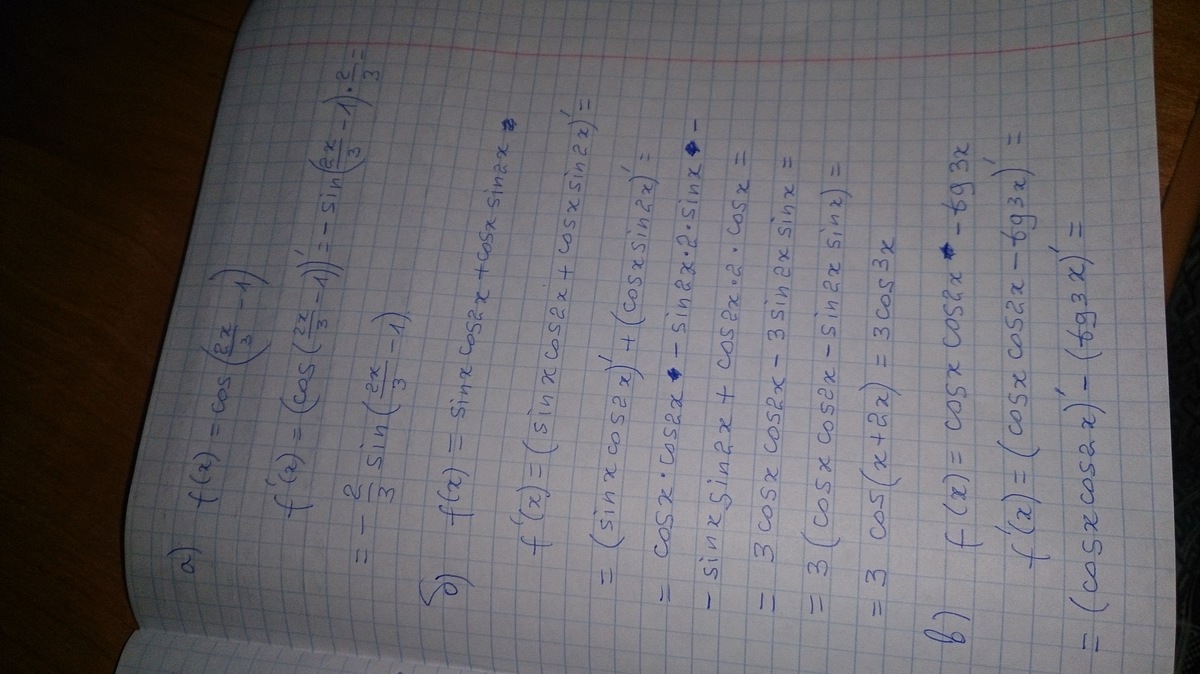 а) f(x) = cos(2x/3 - 1)
f'(x) = (cos(2x/3 - 1))' = - sin(2x/3 - 1) · 2/3 =
= - 2/3 sin(2x/3 - 1)
б) f(x) = sinx cos2x + cosx sin2x
f'(x) = (sinx cos2x + cosx sin2x)' =
= (sinx cos2x)' + (cosx sin2x)' =
= cosx · cos2x - sin2x · 2 · sinx -
- sinx sin2x + cos2x · 2 · cosx =
= 3 cosx cos2x - 3 sin2x sinx =
= 3 (cosx cos2x - sin2x sinx) =
= 3 cos(x+2x) = 3 cos3x
в) f(x) = cosx cos2x - tg3x
f'(x) = (cosx cos2x - tg3x)' =
= (cosx cos2x)' - (tg3x)' =